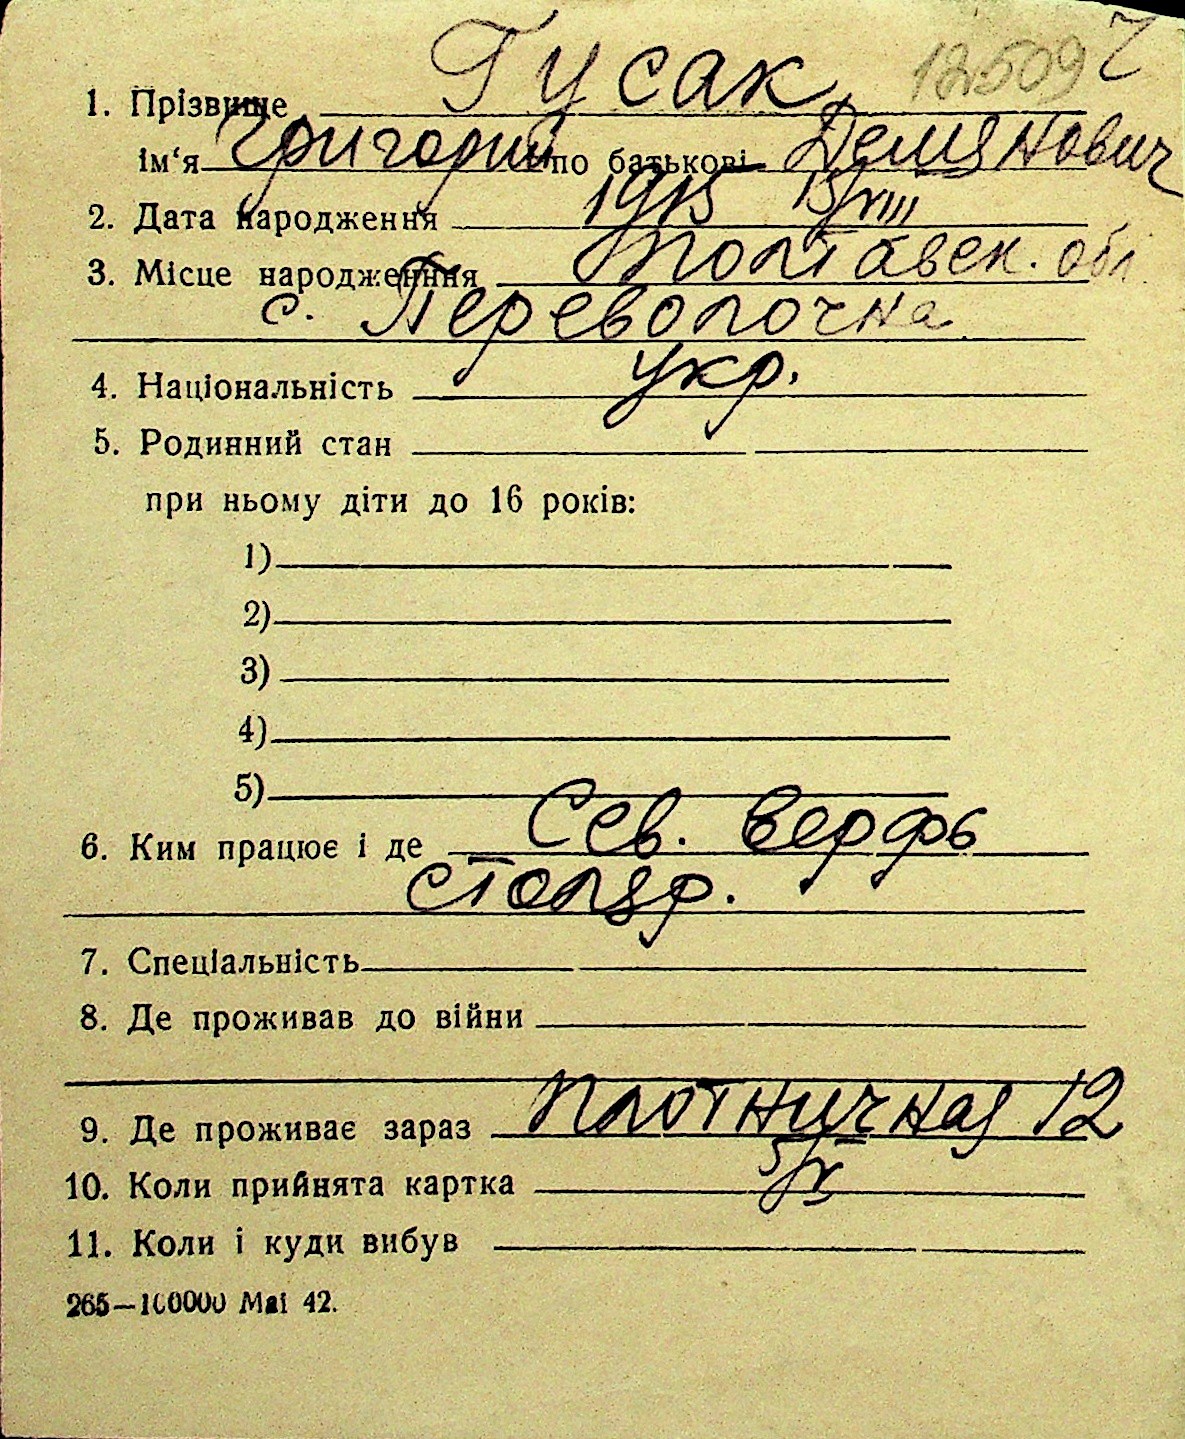 12509
1. Прізвище Гусак
ім‘я Григорий по батькові Демянович
2. Дата народження 1915 15/VIII
3. Місце народження Полтавск. обл
с. Переволочна
4. Національність укр.
5. Родинний стан
при ньому діти до 16 років:
1)
2)
3)
4)
5)
6. Ким працює і де Сев. верфь
столяр.
7. Спеціальність
8. Де проживав до війни
9. Де проживає зараз Плотничная 12
10. Коли прийнята картка
11. Коли і куди вибув
265—100000 Маі 42.